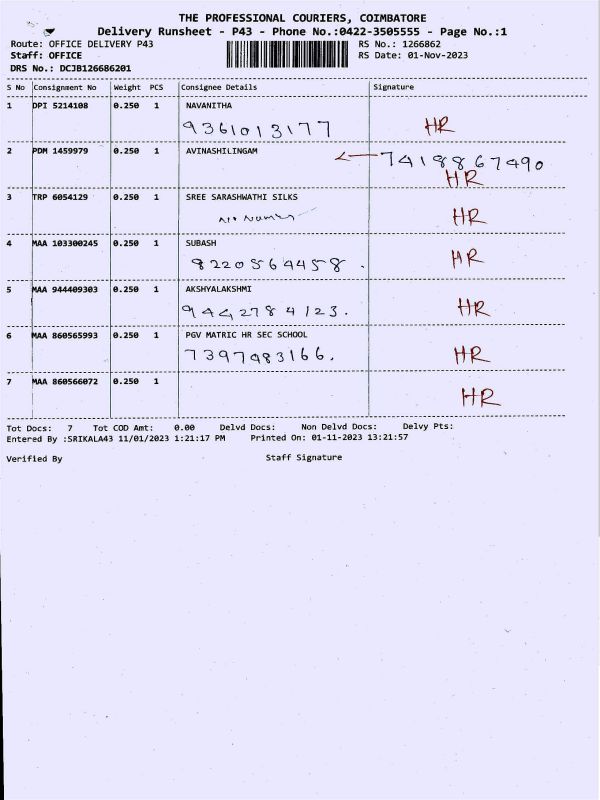 THE PROFESSIONAL COURIERS, COIMBATORE
Delivery Runsheet - P43 - Phone No.:0422-3505555 - Page No.:1
Route: OFFICE DELIVERY P43 RS No.: 1266862
Staff: OFFICE RS Date: 01-Nov-2023
DRS No.: DCJB126686201
S No Consignment No Weight PCS Consignee Details Signature
1 DPI 5214108 0.250 1 NAVANITHA
9361013177 HR
2 PDM 1459979 0.250 1 AVINASHILINGAM
7418867490
HR
3 TRP 6054129 0.250 1 SREE SARASHWATHI SILKS
No Number HR
4 MAA 103300245 0.250 1 SUBASH
8220564458. HR
5 MAA 944409303 0.250 1 AKSHYALAKSHMI
9442784123. HR
6 MAA 860565993 0.250 1 PGV MATRIC HR SEC SCHOOL
7397983166. HR
7 MAA 860566072 0.250 1
HR
Tot Docs: 7 Tot COD Amt: 0.00 Delvd Docs: Non Delvd Docs: Delvy Pts:
Entered By :SRIKALA43 11/01/2023 1:21:17 PM Printed On: 01-11-2023 13:21:57
Verified By Staff Signature